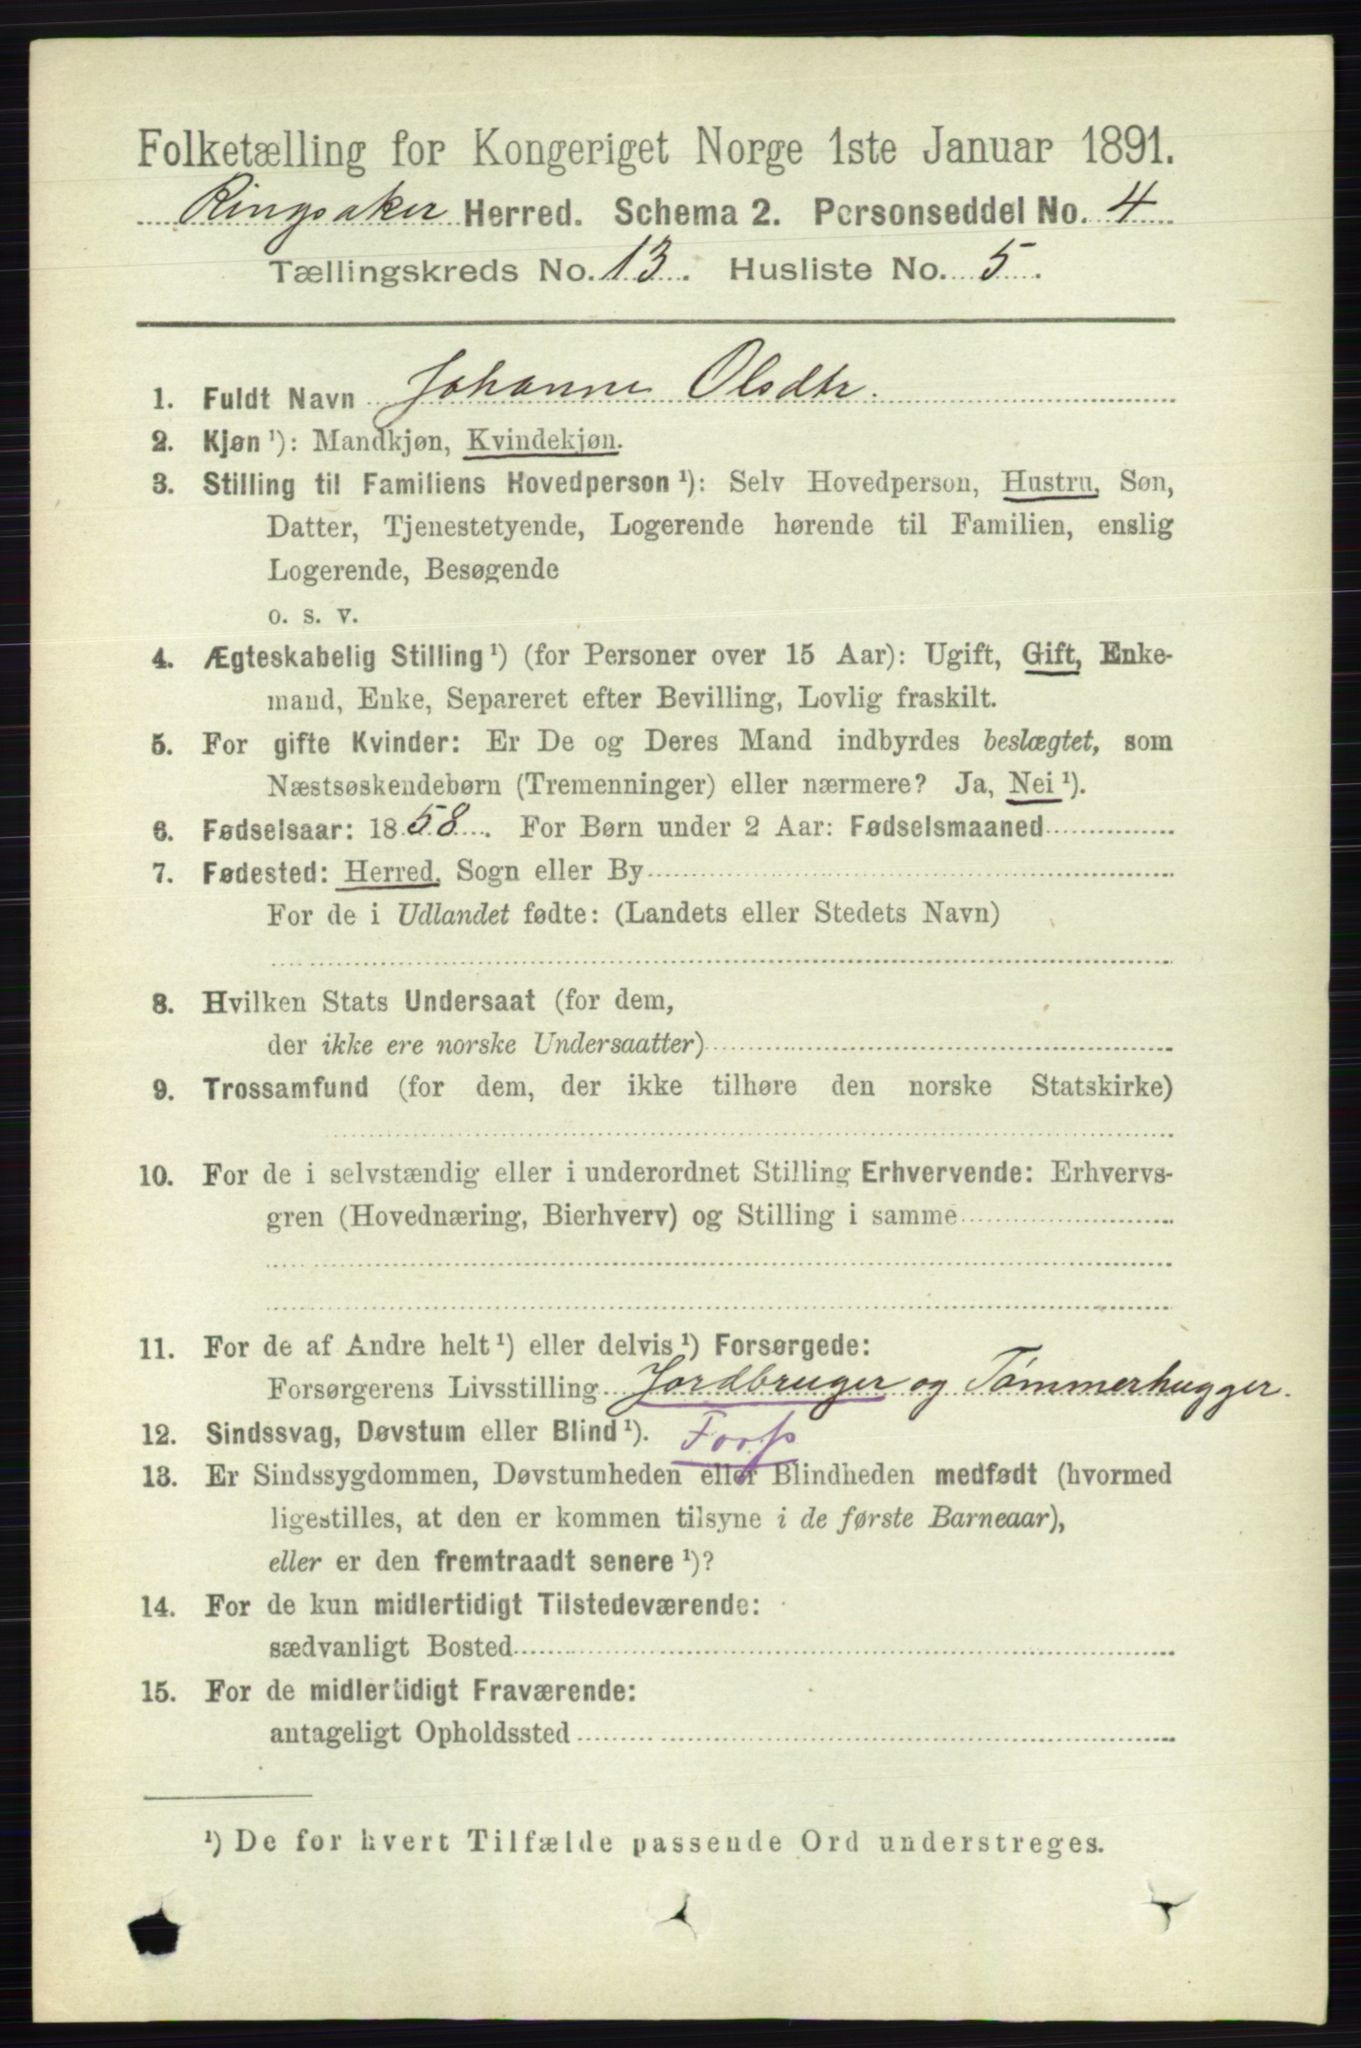 Folketælling for Kongeriget Norge 1ste Januar 1891.
Ringsaker Herred. Schema 2. Personseddel No. 4
Tællingskreds No. 13. Husliste No. 5.
1. Fuldt Navn Johanne Olsdtr.
2. Kjøn ¹): Mandkjøn, Kvindekjøn.
3. Stilling til Familiens Hovedperson ¹): Selv Hovedperson, Hustru, Søn,
Datter, Tjenestetyende, Logerende hørende til Familien, enslig
Logerende, Besøgende
o. s. v.
4. Ægteskabelig Stilling ¹) (for Personer over 15 Aar): Ugift, Gift, Enke-
mand, Enke, Separeret efter Bevilling, Lovlig fraskilt.
5. For gifte Kvinder: Er De og Deres Mand indbyrdes beslægtet, som
Næstsøskendebørn (Tremenninger) eller nærmere? Ja, Nei ¹).
6. Fødselsaar: 1858. For Børn under 2 Aar: Fødselsmaaned
7. Fødested: Herred, Sogn eller By
For de i Udlandet fødte: (Landets eller Stedets Navn)
8. Hvilken Stats Undersaat (for dem,
der ikke ere norske Undersaatter)
9. Trossamfund (for dem, der ikke tilhøre den norske Statskirke)
10. For de i selvstændig eller i underordnet Stilling Erhvervende: Erhvervs-
gren (Hovednæring, Bierhverv) og Stilling i samme
11. For de af Andre helt ¹) eller delvis ¹) Forsørgede:
Forsørgerens Livsstilling Jordbruger og Tømmerhugger.
12. Sindssvag, Døvstum eller Blind ¹).
13. Er Sindssygdommen, Døvstumheden eller Blindheden medfødt (hvormed
ligestilles, at den er kommen tilsyne i de første Barneaar),
eller er den fremtraadt senere ¹)?
14. For de kun midlertidigt Tilstedeværende:
sædvanligt Bosted
15. For de midlertidigt Fraværende:
antageligt Opholdssted
¹) De for hvert Tilfælde passende Ord understreges.